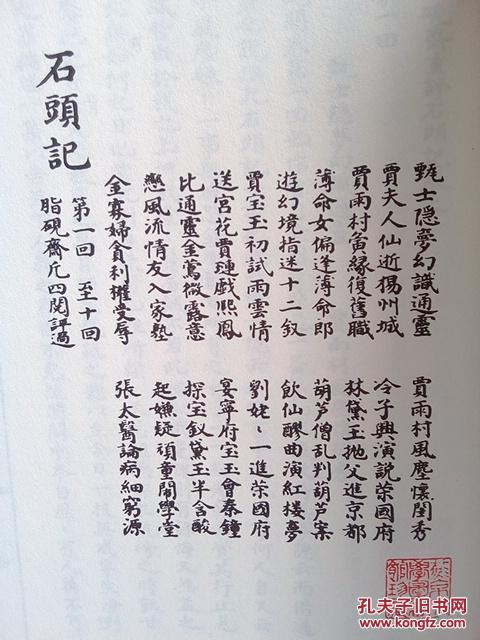 甄士隐夢幻識通靈 賈雨村風塵懷閨秀
賈夫人仙逝揚州城 冷子興演説荣國府
賈雨村夤緣復舊職 林黛玉抛父進京都
薄命女偏逢薄命郎 葫芦僧乱判葫芦案
遊幻境指迷十二釵 飲仙醪曲演紅楼夢
賈宝玉初試雨雲情 劉姥〻一進荣國府
送宮花賈璉戲熙鳳 宴寧府宝玉會秦鐘
比通靈金鶯微露意 探宝釵黛玉半含酸
戀風流情友入家塾 起嫌疑頑童鬧學堂
金寡婦貪利權受辱 張太醫論病細窮源
第一回 至十回
脂硯齋凡四閱評過
石頭記
孔夫子旧书网